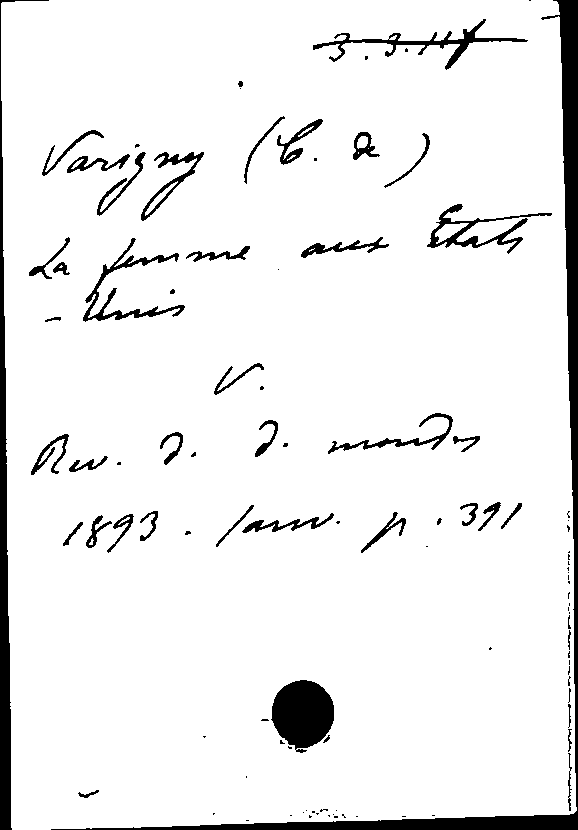 3.3.117
Varigny (C. de)
La femme aux Etats
-Unis
V.
Rev. d. d. mondes
1893. Janv. p. 391